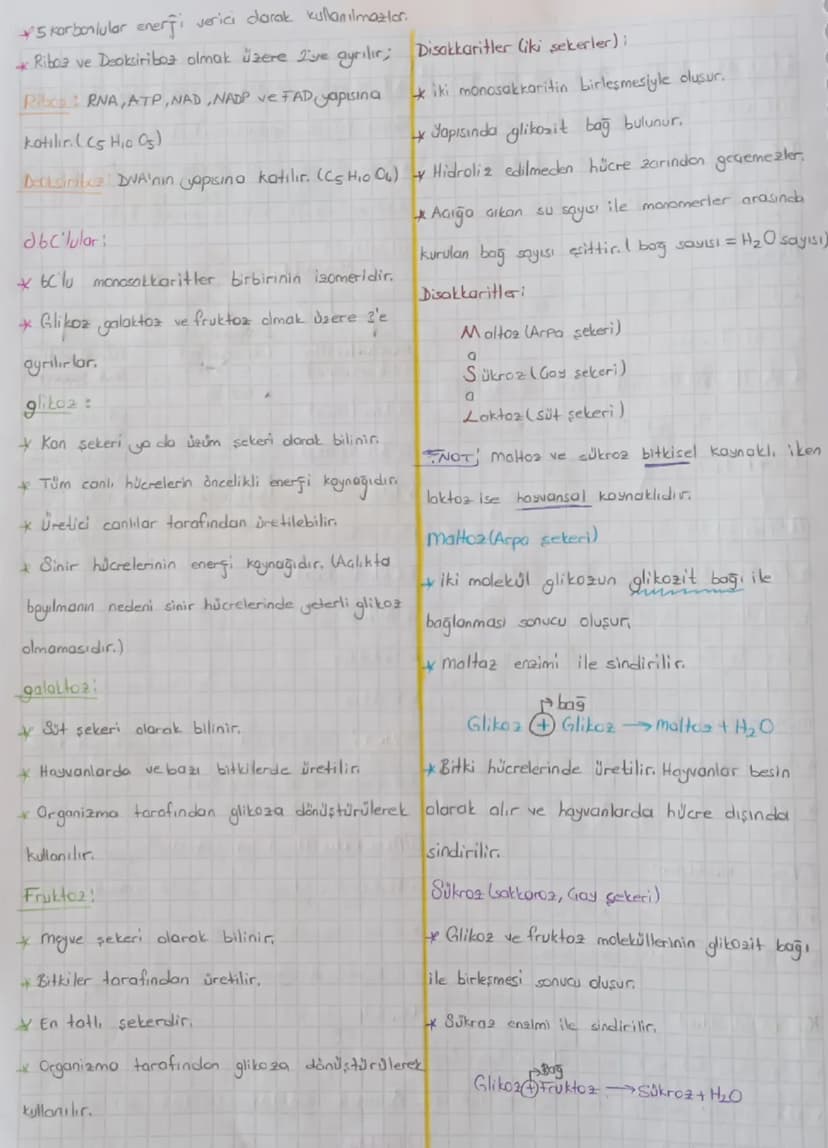 * 5 karbonlular enerji verici olarak kullanılmazlar.
* Riboz ve Deoksiriboz olmak üzere 2'ye ayrılır;
Riboz: RNA, ATP, NAD, NADP ve FAD yapısına
katılır. (C5 H10 O5)
Deoksiriboz: DNA'nın yapısına katılır. (C5 H10 O4)
d6C'lular:
* 6C'lu monosakkaritler birbirinin izomeridir.
* Glikoz, galaktoz ve fruktoz olmak üzere 3'e
ayrılırlar.
glikoz:
* Kan şekeri ya da üzüm şekeri olarak bilinir.
* Tüm canlı hücrelerin öncelikli enerji kaynağıdır.
* Üretici canlılar tarafından üretilebilir.
* Sinir hücrelerinin energi kaynağıdır. (Açlıkta
bayılmanın nedeni sinir hücrelerinde yeterli glikoz
olmamasıdır.)
galaktoz:
* Süt şekeri olarak bilinir.
* Hayvanlarda ve bazı bitkilerde üretilir.
* Organizma tarafından glikoza dönüştürülerek
kullanılır.
Fruktoz:
* Meyve şekeri olarak bilinir.
* Bitkiler tarafından üretilir.
* En tatlı şekerdir.
* Organizma tarafından glikoza dönüştürülerek
kullanılır.
Disakkaritler (iki şekerler):
* İki monosakkaritin birleşmesiyle oluşur.
* Yapısında glikozit bağ bulunur.
* Hidroliz edilmeden hücre zarından geçemezler.
* Açığa çıkan su sayısı ile monomerler arasında
kurulan bağ sayısı eşittir. (bağ sayısı = H2O sayısı)
Disakkaritler:
Maltoz (Arpa şekeri)
a
Sükroz (Çay şekeri)
a
Laktoz (süt şekeri)
NOT; maltoz ve sükroz bitkisel kaynaklı iken
laktoz ise hayvansal kaynaklıdır.
Maltoz (Arpa şekeri)
* iki molekül glikozun glikozit bağı ile
bağlanması sonucu oluşur.
* maltaz enzimi ile sindirilir.
bağ
Glikoz + Glikoz → maltoz + H2O
* Bitki hücrelerinde üretilir. Hayvanlar besin
olarak alır ve hayvanlarda hücre dışında
sindirilir.
Sükroz (sakkaroz, Çay şekeri)
* Glikoz ve fruktoz moleküllerinin glikozit bağı
ile birleşmesi sonucu oluşur.
* Sükraz enzimi ile sindirilir.
Bağ
Glikoz + Fruktoz → Sükroz + H2O